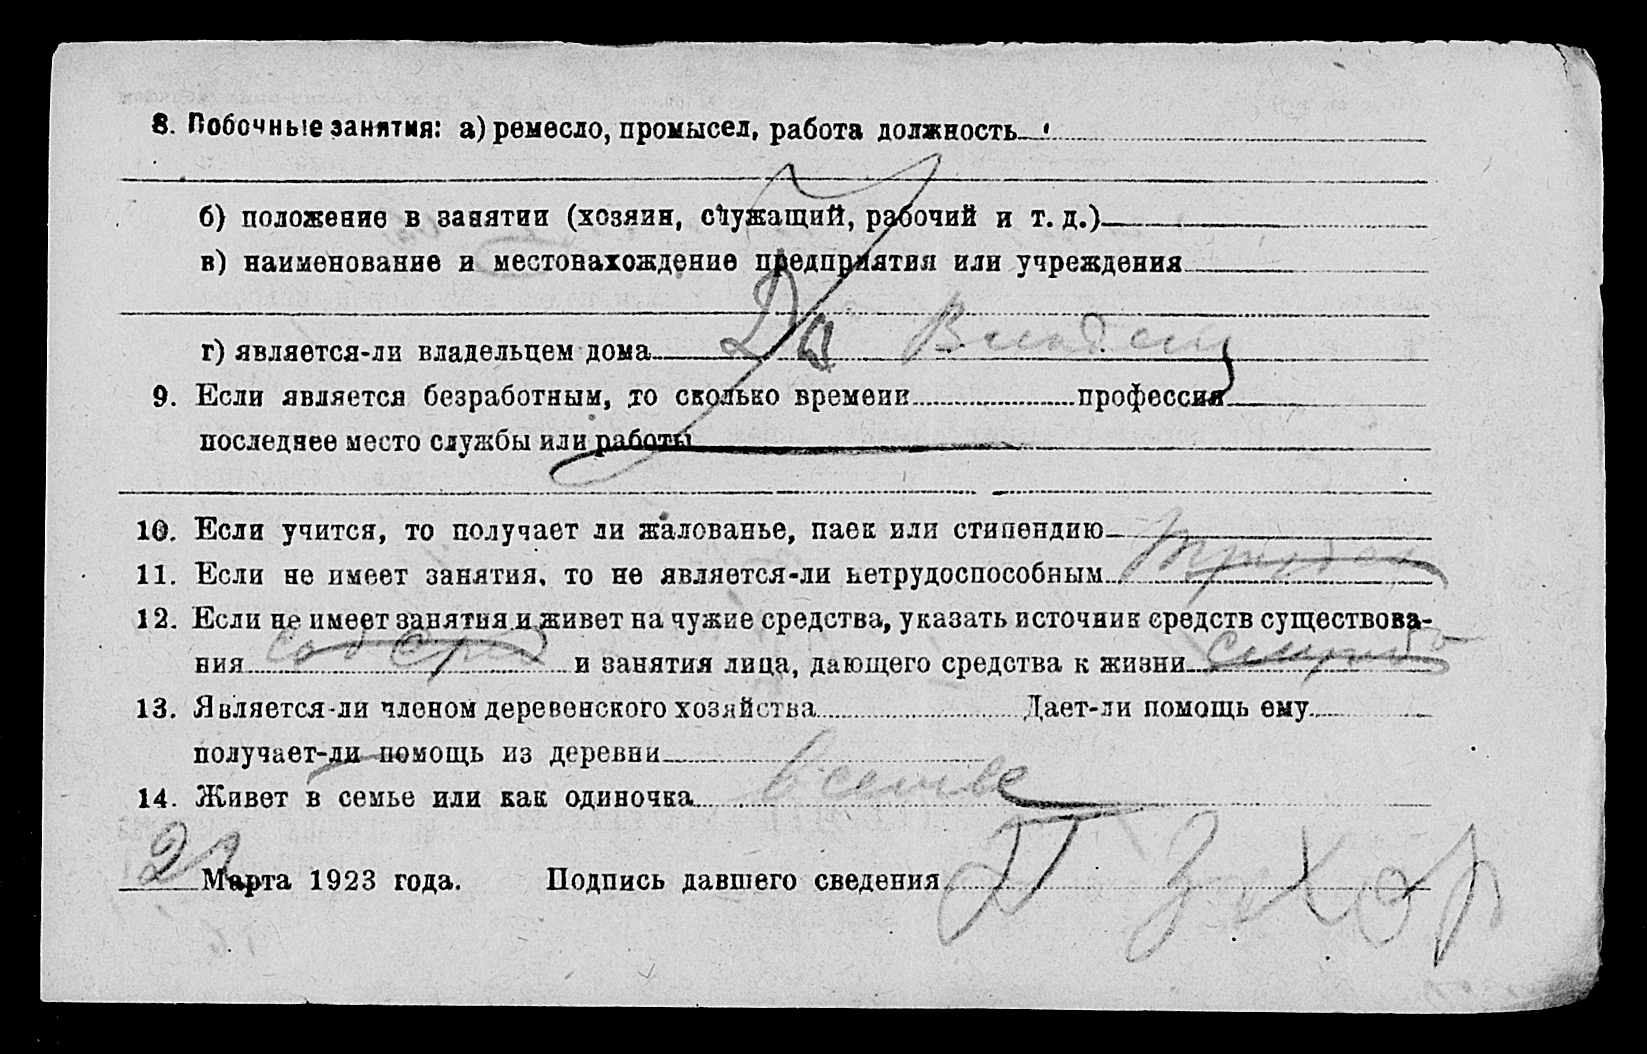 8. Побочные занятия: а) ремесло, промысел, работа должность
б) положение в занятии (хозяин, служащий, рабочий и т. д.)
в) наименование и местонахождение предприятия или учреждения
г) является-ли владельцем дома Да Владелец
9. Если является безработным, то сколько времени профессия
последнее место службы или работы
10. Если учится, то получает ли жалованье, паек или стипендию
11. Если не имеет занятия, то не является-ли нетрудоспособным
12. Если не имеет занятия и живет на чужие средства, указать источник средств существова-
ния и занятия лица, дающего средства к жизни
13. Является-ли членом деревенского хозяйства Дает-ли помощь ему
получает-ли помощь из деревни
14. Живет в семье или как одиночка в семье
Марта 1923 года. Подпись давшего сведения